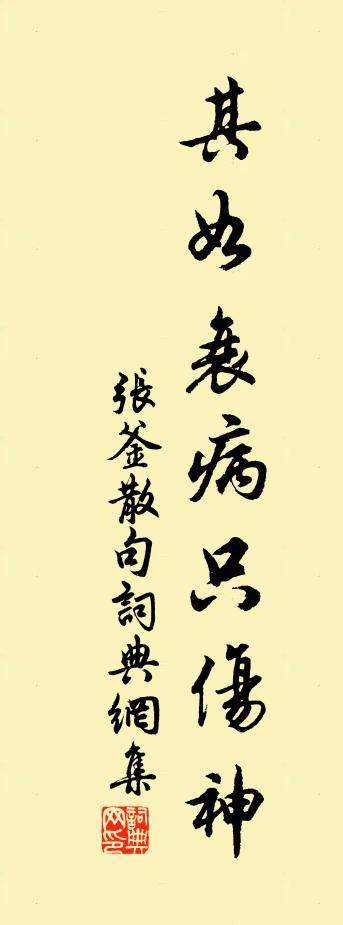 其如衰病只傷神
張釜散句詞典網集
詞典网印